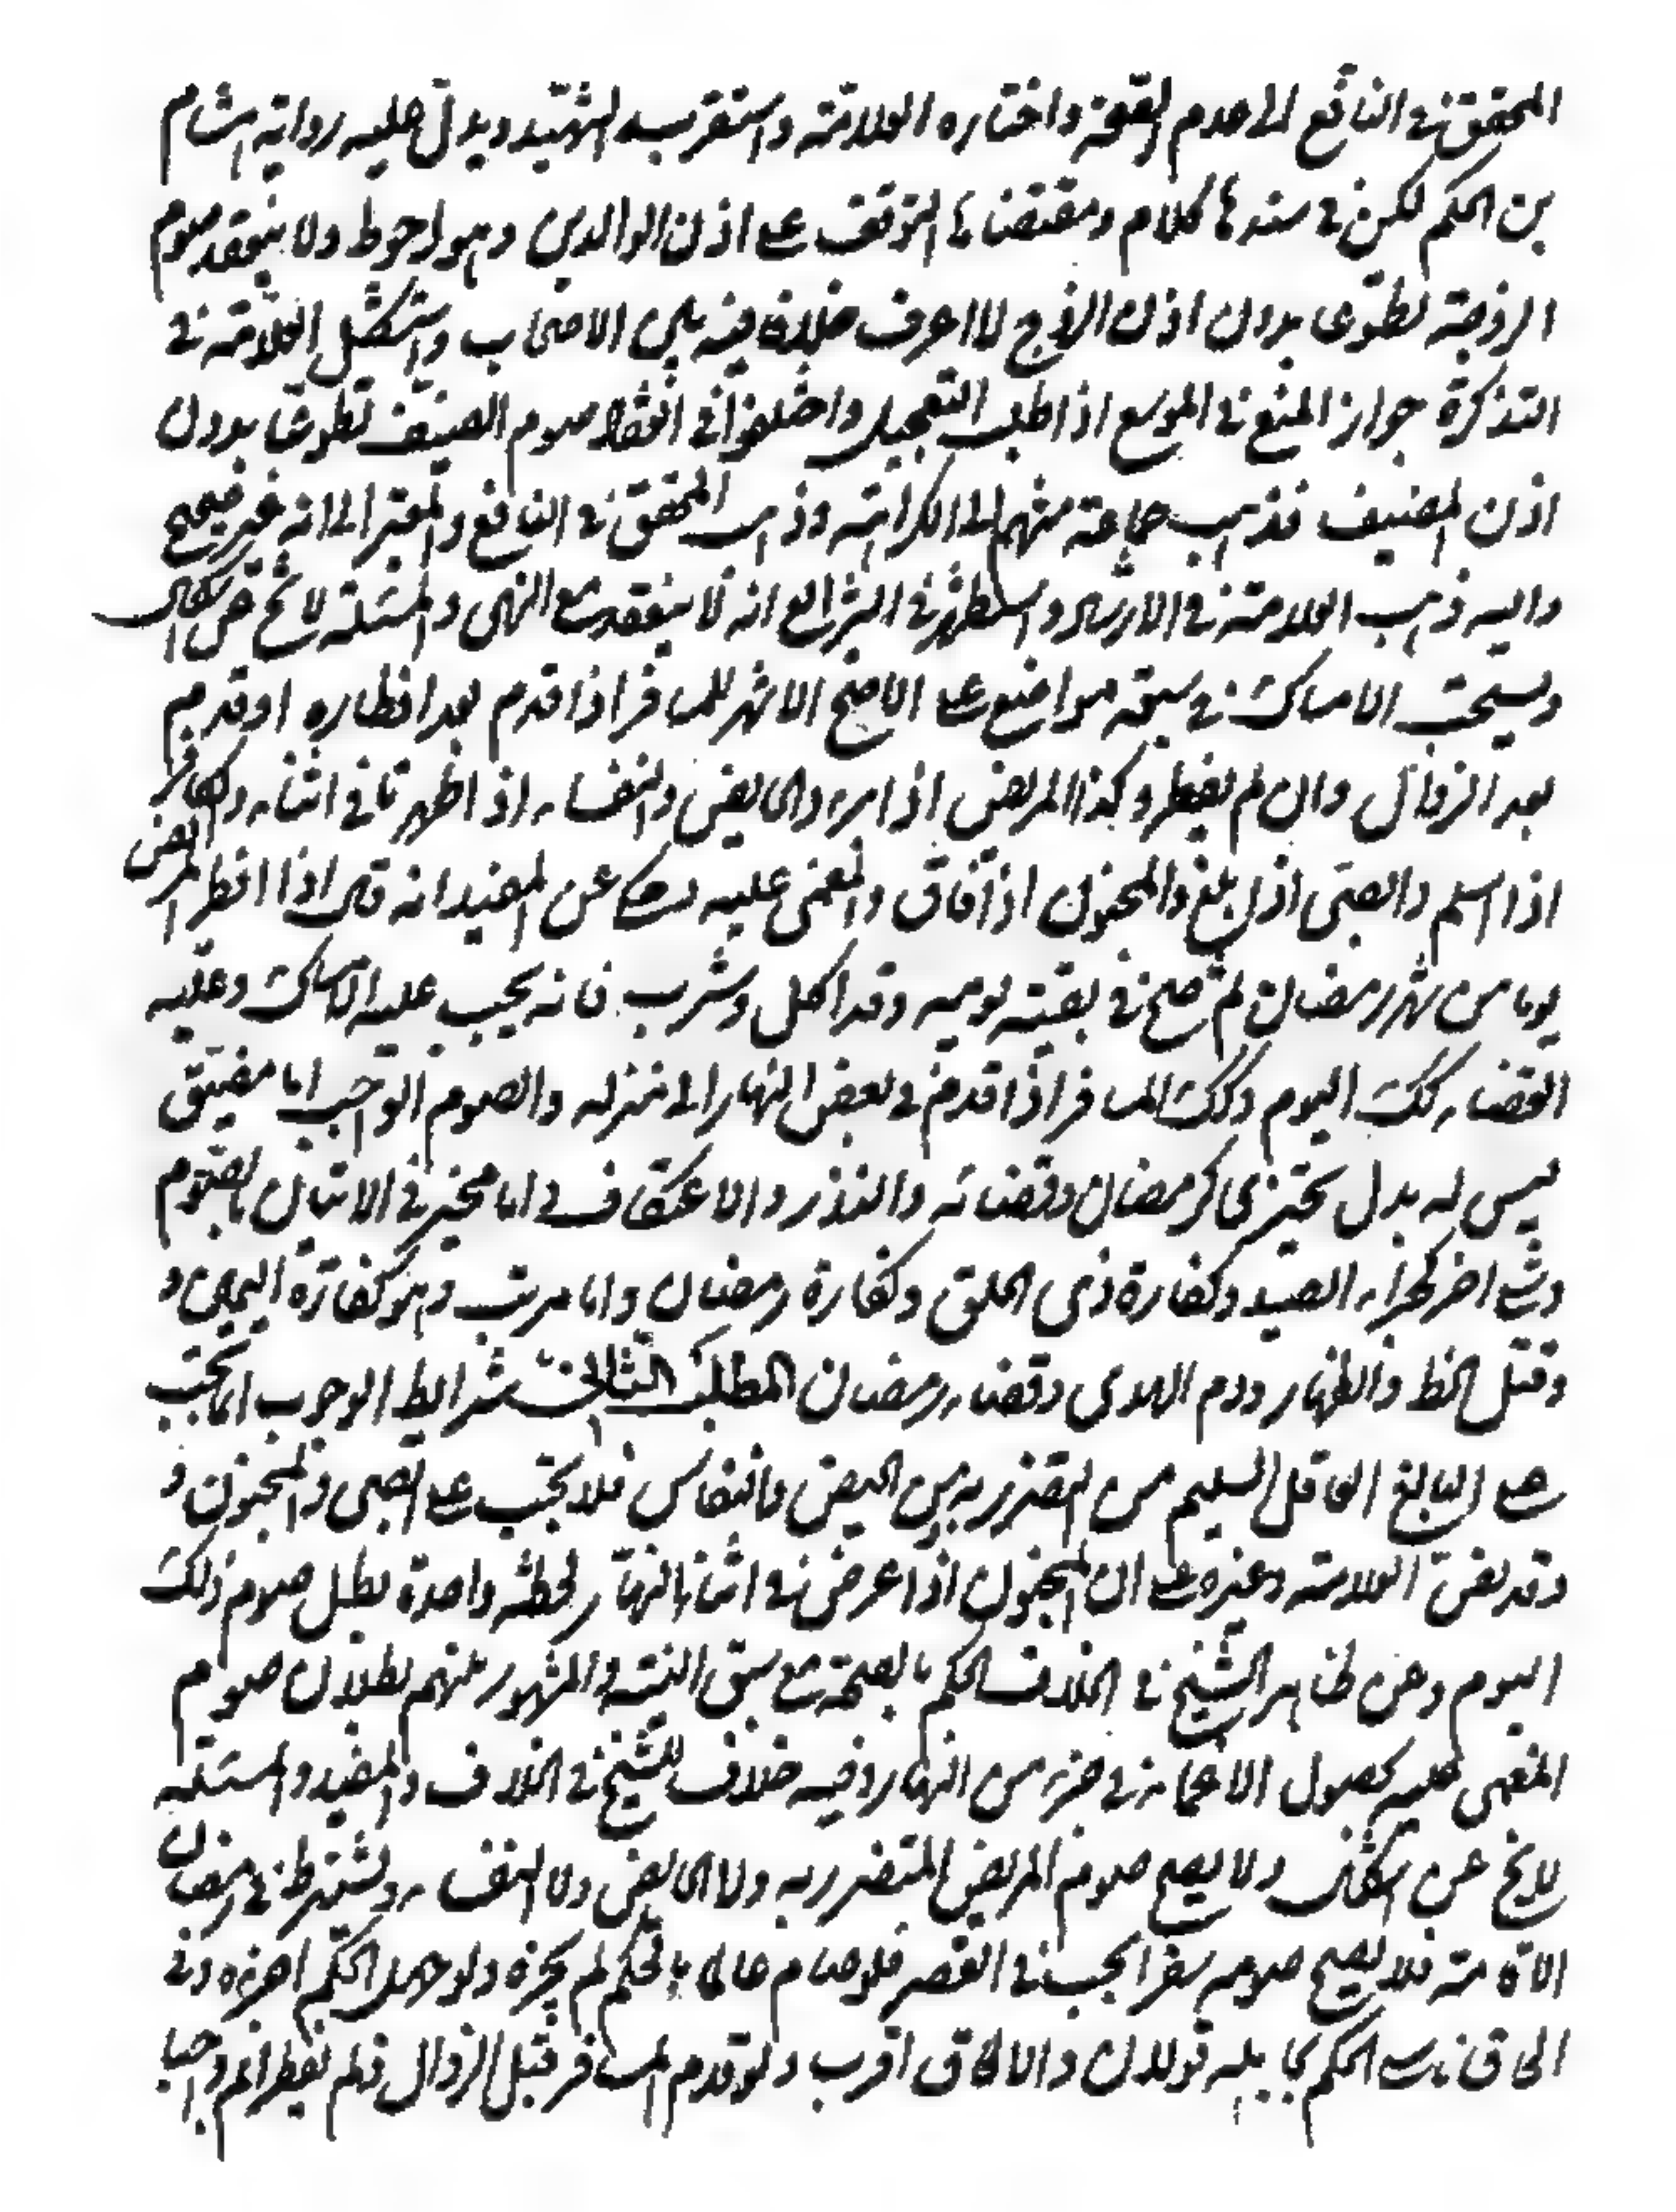 المحقق في النافع الى عدم الصحة واختاره العلامة واستقربه الشهيد ويدل عليه رواية هشام
بن الحكم لكن في سندها كلام ومقتضاها التوقف على اذن الوالدين وهو احوط ولا ينعقد صوم
الزوجة تطوعا بدون اذن الزوج لا اعرف خلافا فيه بين الاصحاب واستشكل العلامة في
التذكرة جواز المنع في الموسع اذا طلب التعجيل واختلفوا في انعقاد صوم الضيف تطوعا بدون
اذن المضيف فذهب جماعة منهم الى الكراهة وذهب المحقق في النافع والمعتبر الى انه غير صحيح
واليه ذهب العلامة في الارشاد واستظهر في الشرايع انه لا ينعقد مع النهي والمسئلة لا يخ عن اشكال
ويستحب الامساك في سبعة مواضع على الاصح الاشهر للمسافر اذا قدم بعد افطاره او قدم
بعد الزوال وان لم يفطر وكذا المريض اذا برء والحايض والنفساء اذا طهرتا في اثنائه والكافر
اذا اسلم والصبي اذا بلغ والمجنون اذا افاق والمغمى عليه وحكي عن المفيد انه قال اذا افطر المريض
يوما من شهر رمضان ثم صح في بقية يومه وقد اكل وشرب فانه يجب عليه الامساك وعليه
القضاء لذلك اليوم وكك المسافر اذا قدم في بعض النهار الى منزله والصوم الواجب اما مضيق
ليس له بدل تخييري كرمضان وقضائه والنذر والاعتكاف واما مخير في الاتيان بالصوم
وشيء اخر كجزاء الصيد وكفارة اذى الحلق وكفارة رمضان واما مرتب وهو كفارة اليمين و
وقتل الخطا والظهار ودم الهدى وقضاء رمضان المطلب الثالث شرايط الوجوب انما يجب
على البالغ العاقل السليم من التضرر به من الحيض والنفاس فلا يجب على الصبي والمجنون و
وقد نص العلامة وغيره على ان المجنون اذا عرض في اثناء النهار لحظة واحدة بطل صوم ذلك
اليوم وعن ظاهر الشيخ في الخلاف الحكم بالصحة مع سبق النية والمشهور بينهم بطلان صوم
المغمى عليه بحصول الاغماء في جزء من النهار وفيه خلاف للشيخ في الخلاف والمفيد والمسئلة
لا يخ عن اشكال ولا يصح صوم المريض المتضرر به ولا الحايض ولا النفساء ويشترط في رمضان
الاقامة فلا يصح صومه سفرا يجب فيه القصر فلو صام عالما بالحكم لم يجزه ولو جهل الحكم اجزءه وفي
الحاق ناسي الحكم بجاهله قولان والالحاق اقرب ولو قدم المسافر قبل الزوال ولم يفطر اتم واجبا